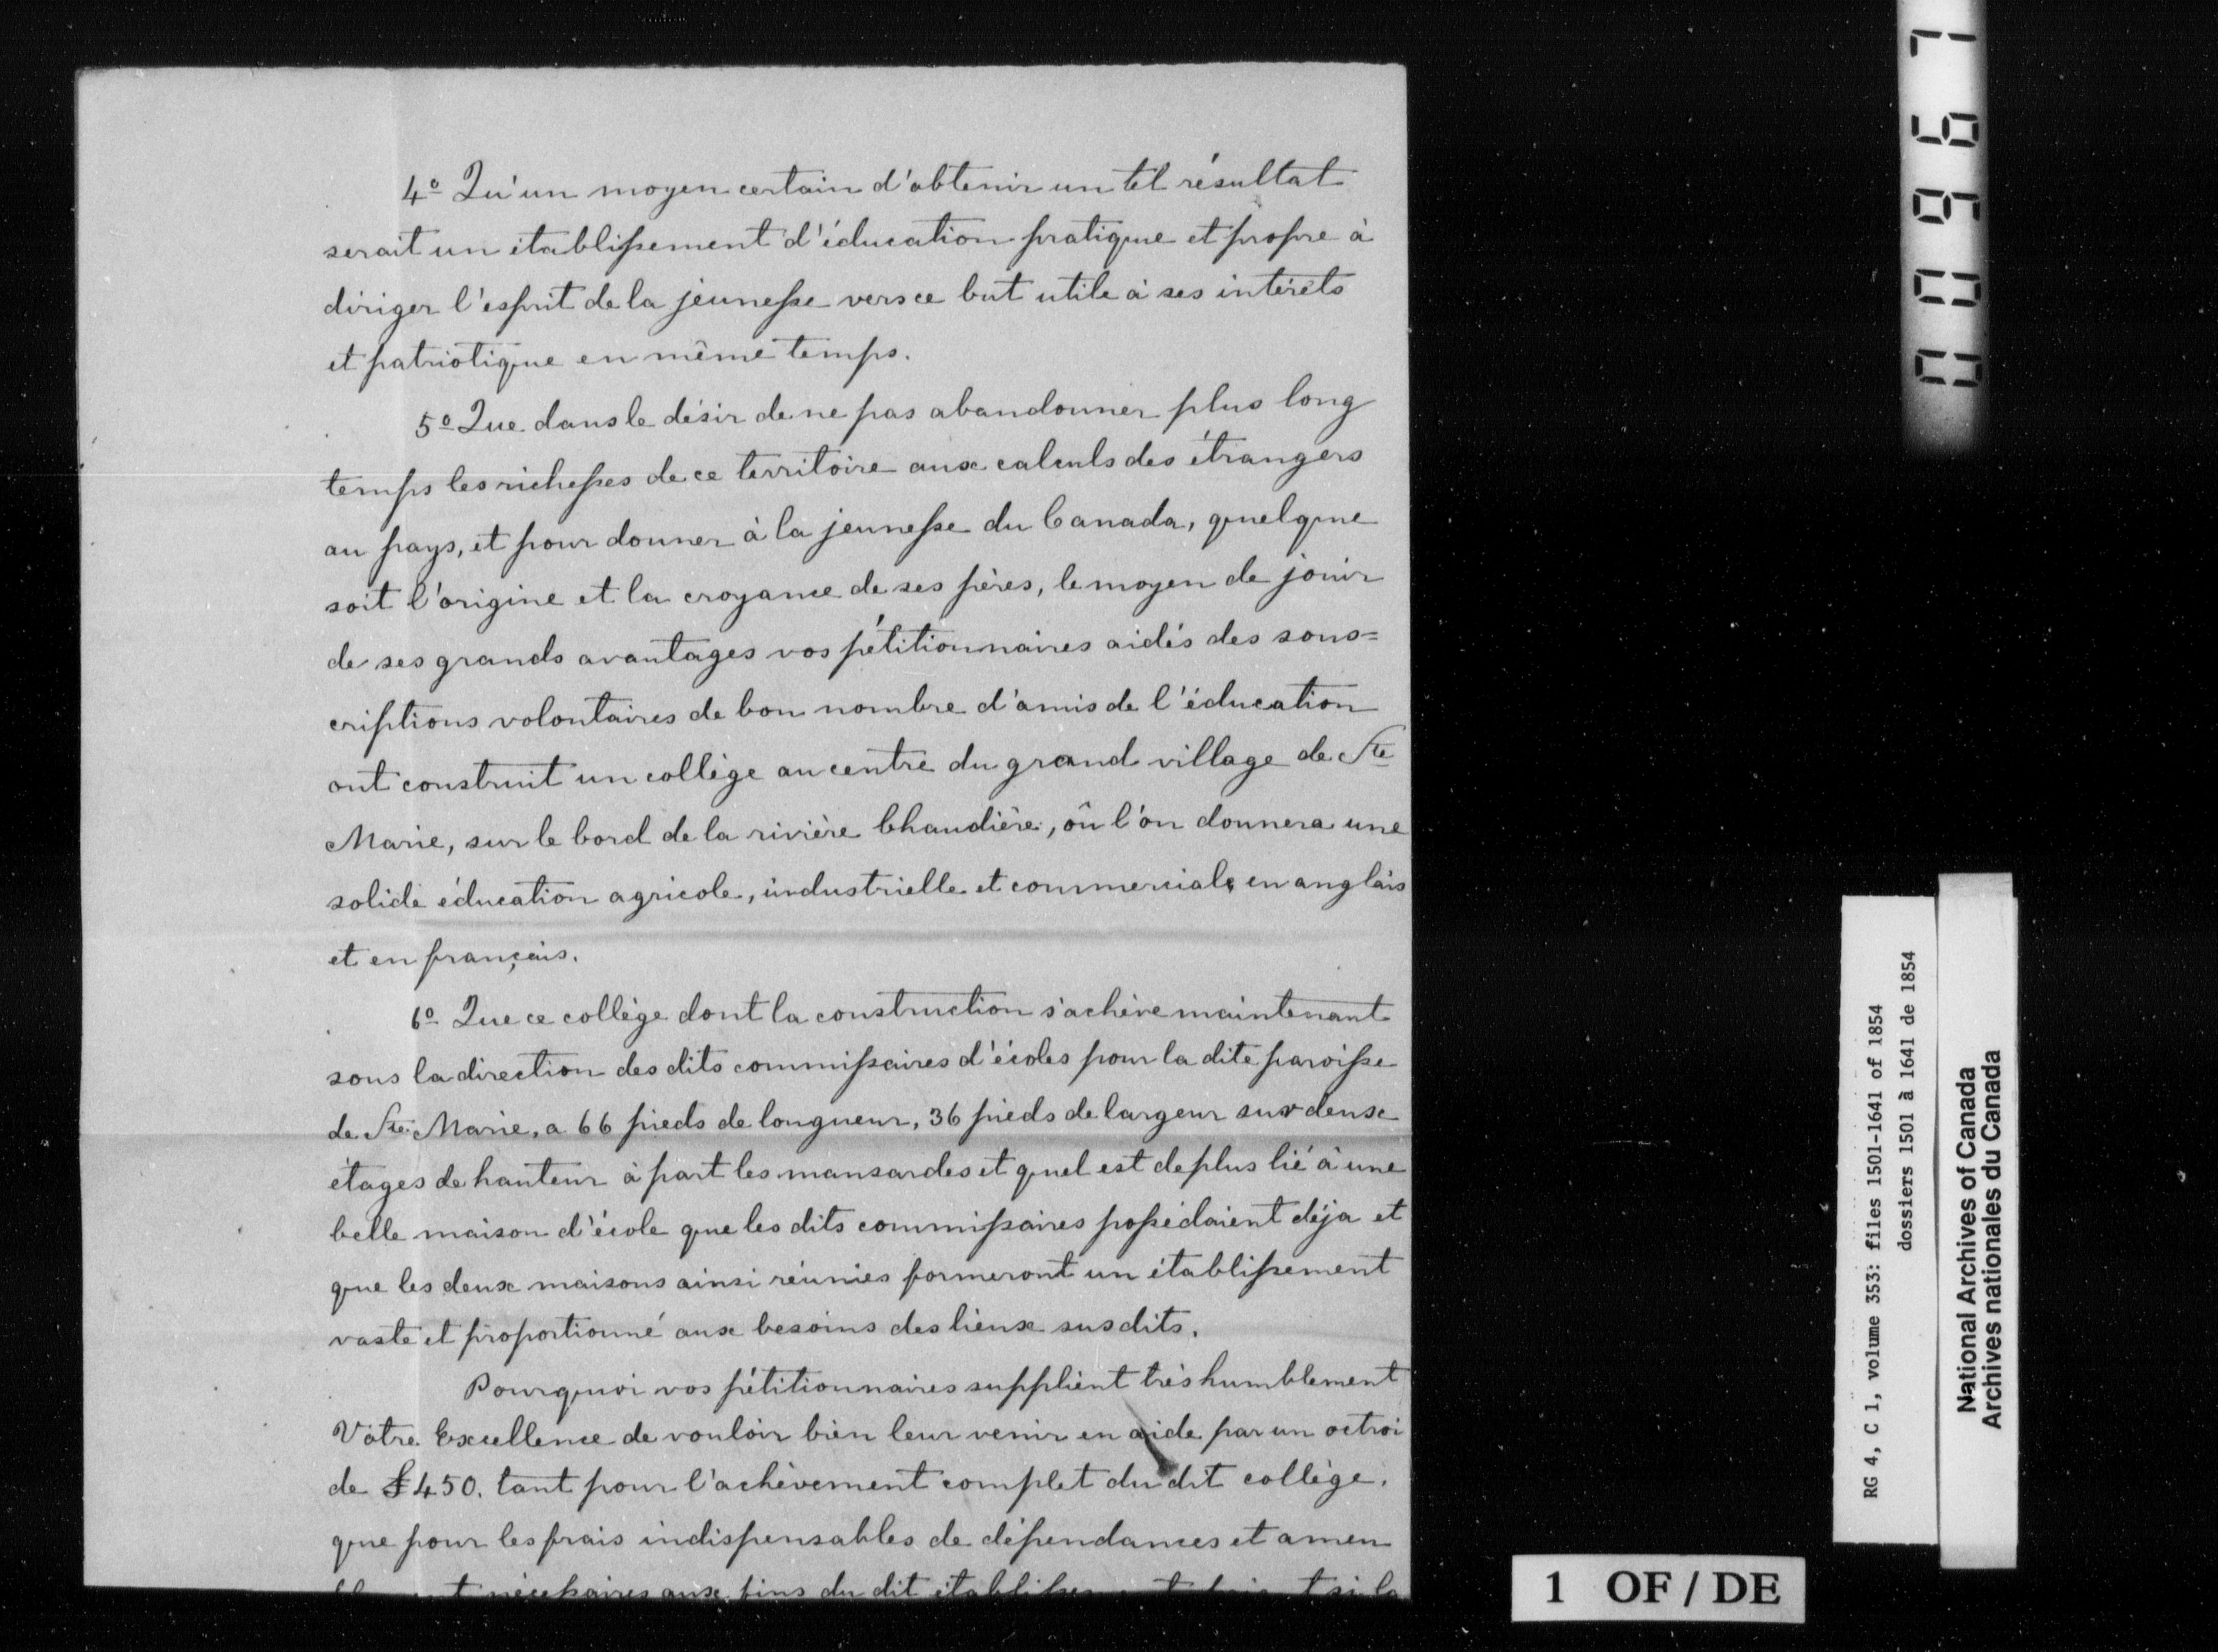 4º Qu'un moyen certain d'obtenir un tel résultat
serait un établissement d'éducation pratique et propre à
diriger l'esprit de la jeunesse vers ce but utile à ses intérêts
et patriotique en même temps.
5º Que dans le désir de ne pas abandonner plus long
temps les richesses de ce territoire aux calculs des étrangers
au pays, et pour donner à la jeunesse du Canada, quelque
soit l'origine et la croyance de ses pères, le moyen de jouir
de ses grands avantages vos pétitionnaires aidés des sous=
criptions volontaires de bon nombre d'amis de l'éducation
ont construit un collège au centre du grand village de Ste
Marie, sur le bord de la rivière Chaudière, où l'on donnera une
solide éducation agricole, industrielle et commerciale en anglais
et en français.
6º Que ce collège dont la construction s'achève maintenant
sous la direction des dits commissaires d'écoles pour la dite paroisse
de Ste Marie, a 66 pieds de longueur, 36 pieds de largeur sur deux
étages de hauteur à part les mansardes et quel est de plus lié à une
belle maison d'école que les dits commissaires possédaient déja et
que les deux maisons ainsi réunies formeront un établissement
vaste et proportionné aux besoins des lieux susdits.
Pourquoi vos pétitionnaires supplient très humblement
Votre Excellence de vouloir bien leur venir en aide par un octroi
de £450. tant pour l'achèvement complet du dit collège.
que pour les frais indispensables de dépendances et amen
nécessaires aux fins du dit
00967
RG 4, C 1, volume 353: files 1501-1641 of 1854
dossiers 1501 à 1641 de 1854
National Archives of Canada
Archives nationales du Canada
1 OF / DE